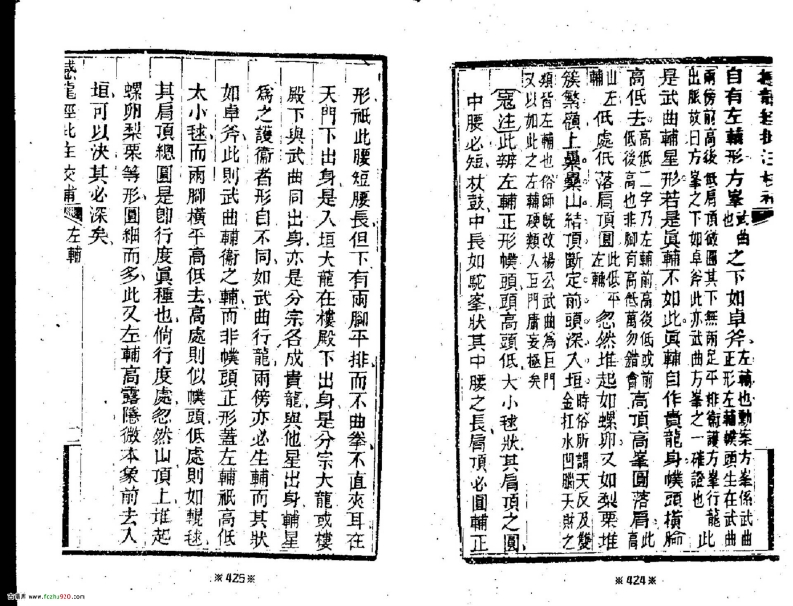 自有左輔形方峯武曲也之下如卓斧左輔也勤案方峯係武曲正形左輔幞頭生在武曲
兩傍前高後低肩頂微圓其下無兩足平排衛護方峯行龍此出脈故曰方峯之下如卓斧此亦武曲方峯之一確證也
是武曲輔星形若是眞輔不如此眞輔自作貴龍身幞頭橫腳
高低去高低二字乃左輔前高後低或前低後高也非腳有高低萬勿錯會高頂高峯圓落肩此
山左輔低處低落肩頂圓此低平左輔忽然堆起如螺卵又如梨栗堆
簇繁嶺上纍纍山結頂斷定前頭深入垣時俗所謂天反及雙金扛水凹腦天財之
類皆左輔也俗師旣改楊公武曲爲巨門又以如此之左輔硬類入巨門庸妄極矣
寇注此辨左輔正形幞頭頭高頭低大小毬狀其肩頂之圓
中腰必短杖鼓中長如駝峯狀其中腰之長肩頂必圓輔正
※424※
形祗此腰短腰長但下有兩腳平排而不曲拳不直夾耳在
天門下出身是入垣大龍在樓殿下出身是分宗大龍或樓
殿下與武曲同出身亦是分宗各成貴龍與他星出身輔星
爲之護衛者形自不同如武曲行龍兩傍亦必生輔而其狀
如卓斧此則武曲輔衛之輔而非幞頭正形蓋左輔祗高低
太小毬而兩腳橫平高低去高處則似幞頭低處則如輥毬
其肩頂總圓是卽行度眞種也倘行度處忽然山頂上堆起
螺卵梨栗等形圓細而多此又左輔高露隱微本象前去入
垣可以決其必深矣
撼龍經批注校補 左輔
※425※
古書庫 www.fczhu920.com